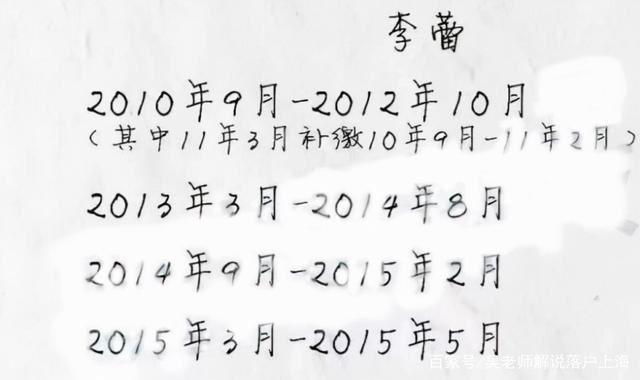 李蕾
2010年9月-2012年10月
(其中11年3月补缴10年9月-11年2月)
2013年3月-2014年8月
2014年9月-2015年2月
2015年3月-2015年5月
百家号/吴老师解说落户上海